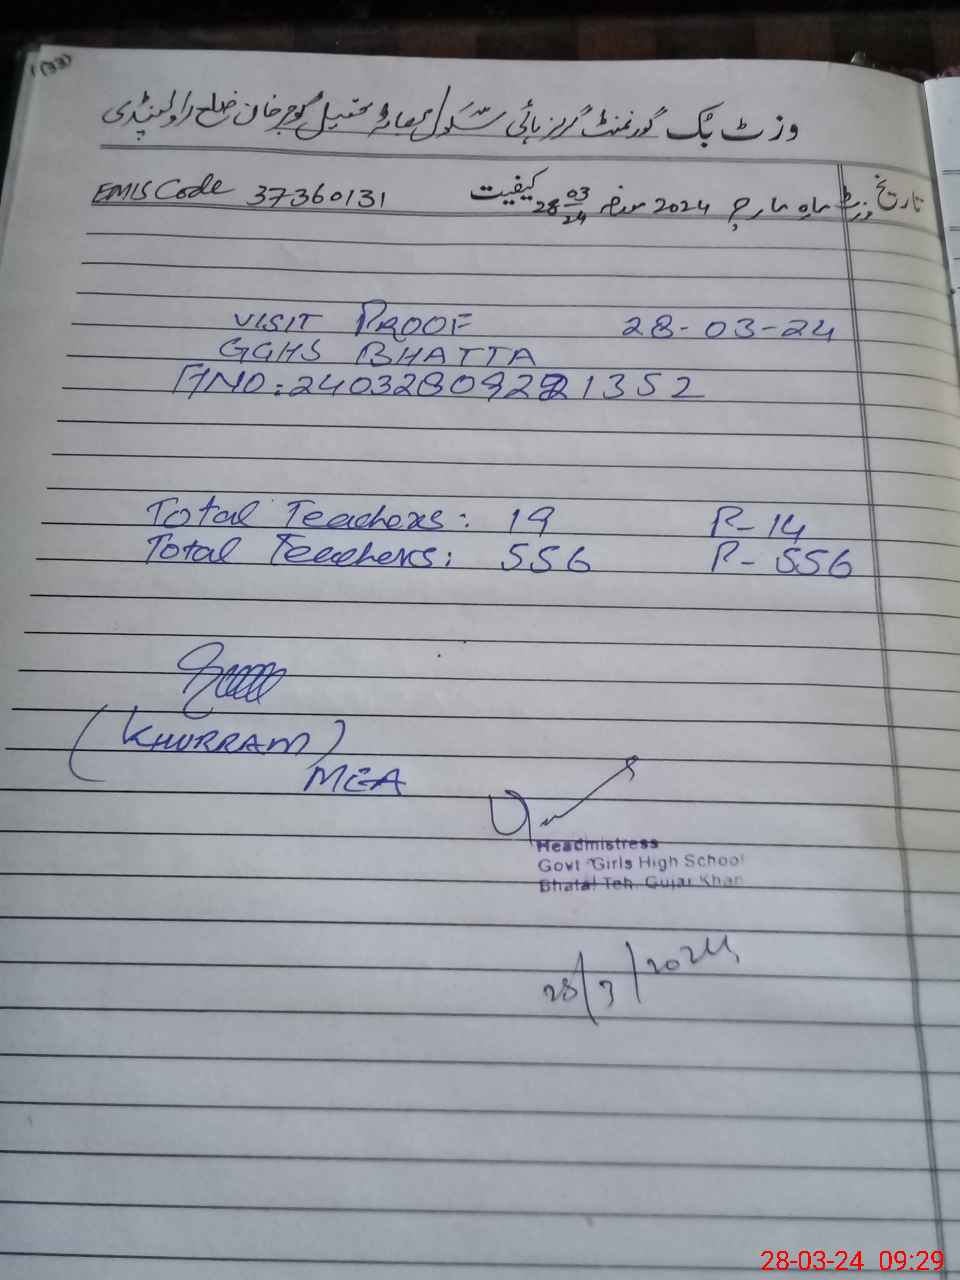 (133)
وزٹ بک گورنمنٹ گرلز ہائی سکول بھاٹہ تحصیل گوجر خان ضلع راولپنڈی
تاریخ وزٹ ماہ مارچ 2024 مورخہ 28 03/24 کیفیت EMIS Code 37360131
VISIT PROOF 28-03-24
GGHS BHATTA
240328092921352
Total Teachers: 19 P-14
Total Teachers: 556 P-556
(KHURRAM)
MEA
Headmistress
Govt Girls High School
Bhatal Teh. Gujar Khan
28/3/2024
28-03-24 09:29